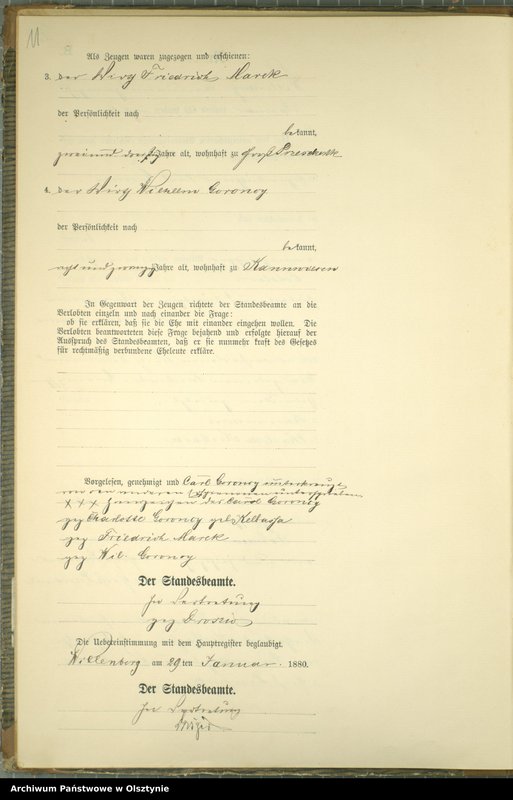 11
Als Zeugen waren zugezogen und erschienen:
3. der Wirth Friedrich Marek
der Persönlichkeit nach
bekannt,
zweiund dreißig Jahre alt, wohnhaft zu Groß
4. der Wirth Wilhelm Goroncy
der Persönlichkeit nach
bekannt,
acht und zwanzig Jahre alt, wohnhaft zu Kannwiesen
In Gegenwart der Zeugen richtete der Standesbeamte an die
Verlobten einzeln und nach einander die Frage:
ob sie erklären, daß sie die Ehe mit einander eingehen wollen. Die
Verlobten beantworteten diese Frage bejahend und erfolgte hierauf der
Ausspruch des Standesbeamten, daß er sie nunmehr kraft des Gesetzes
für rechtmäßig verbundene Eheleute erkläre.
Vorgelesen, genehmigt und Carl Goroncy unterkreuzt
von den anderen unterschrieben
X X X Handzeichen des Carl Goroncy
gez Charlotte Goroncy geb. Kelbassa
gez Friedrich Marek
gez Wil. Goroncy
Der Standesbeamte.
In Vertretung
gez
Die Uebereinstimmung mit dem Hauptregister beglaubigt.
Willenberg am 29 ten Januar 1880.
Der Standesbeamte.
In Vertretung
Archiwum Państwowe w Olsztynie